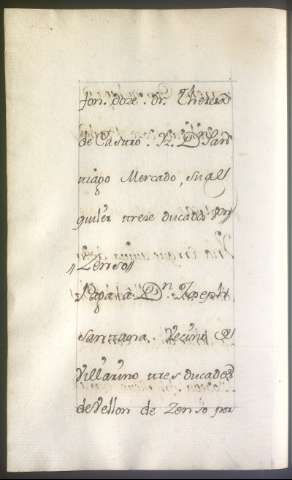 fon. doze. Dr. Theresa
de Castro. Yz. Dn San
tiago Mercado, su al
quiler trese ducados
Zenso
Paga a Dn. Joseph
Santtana. Vezino
Villarino tres ducados
de Vellon de Zenso por